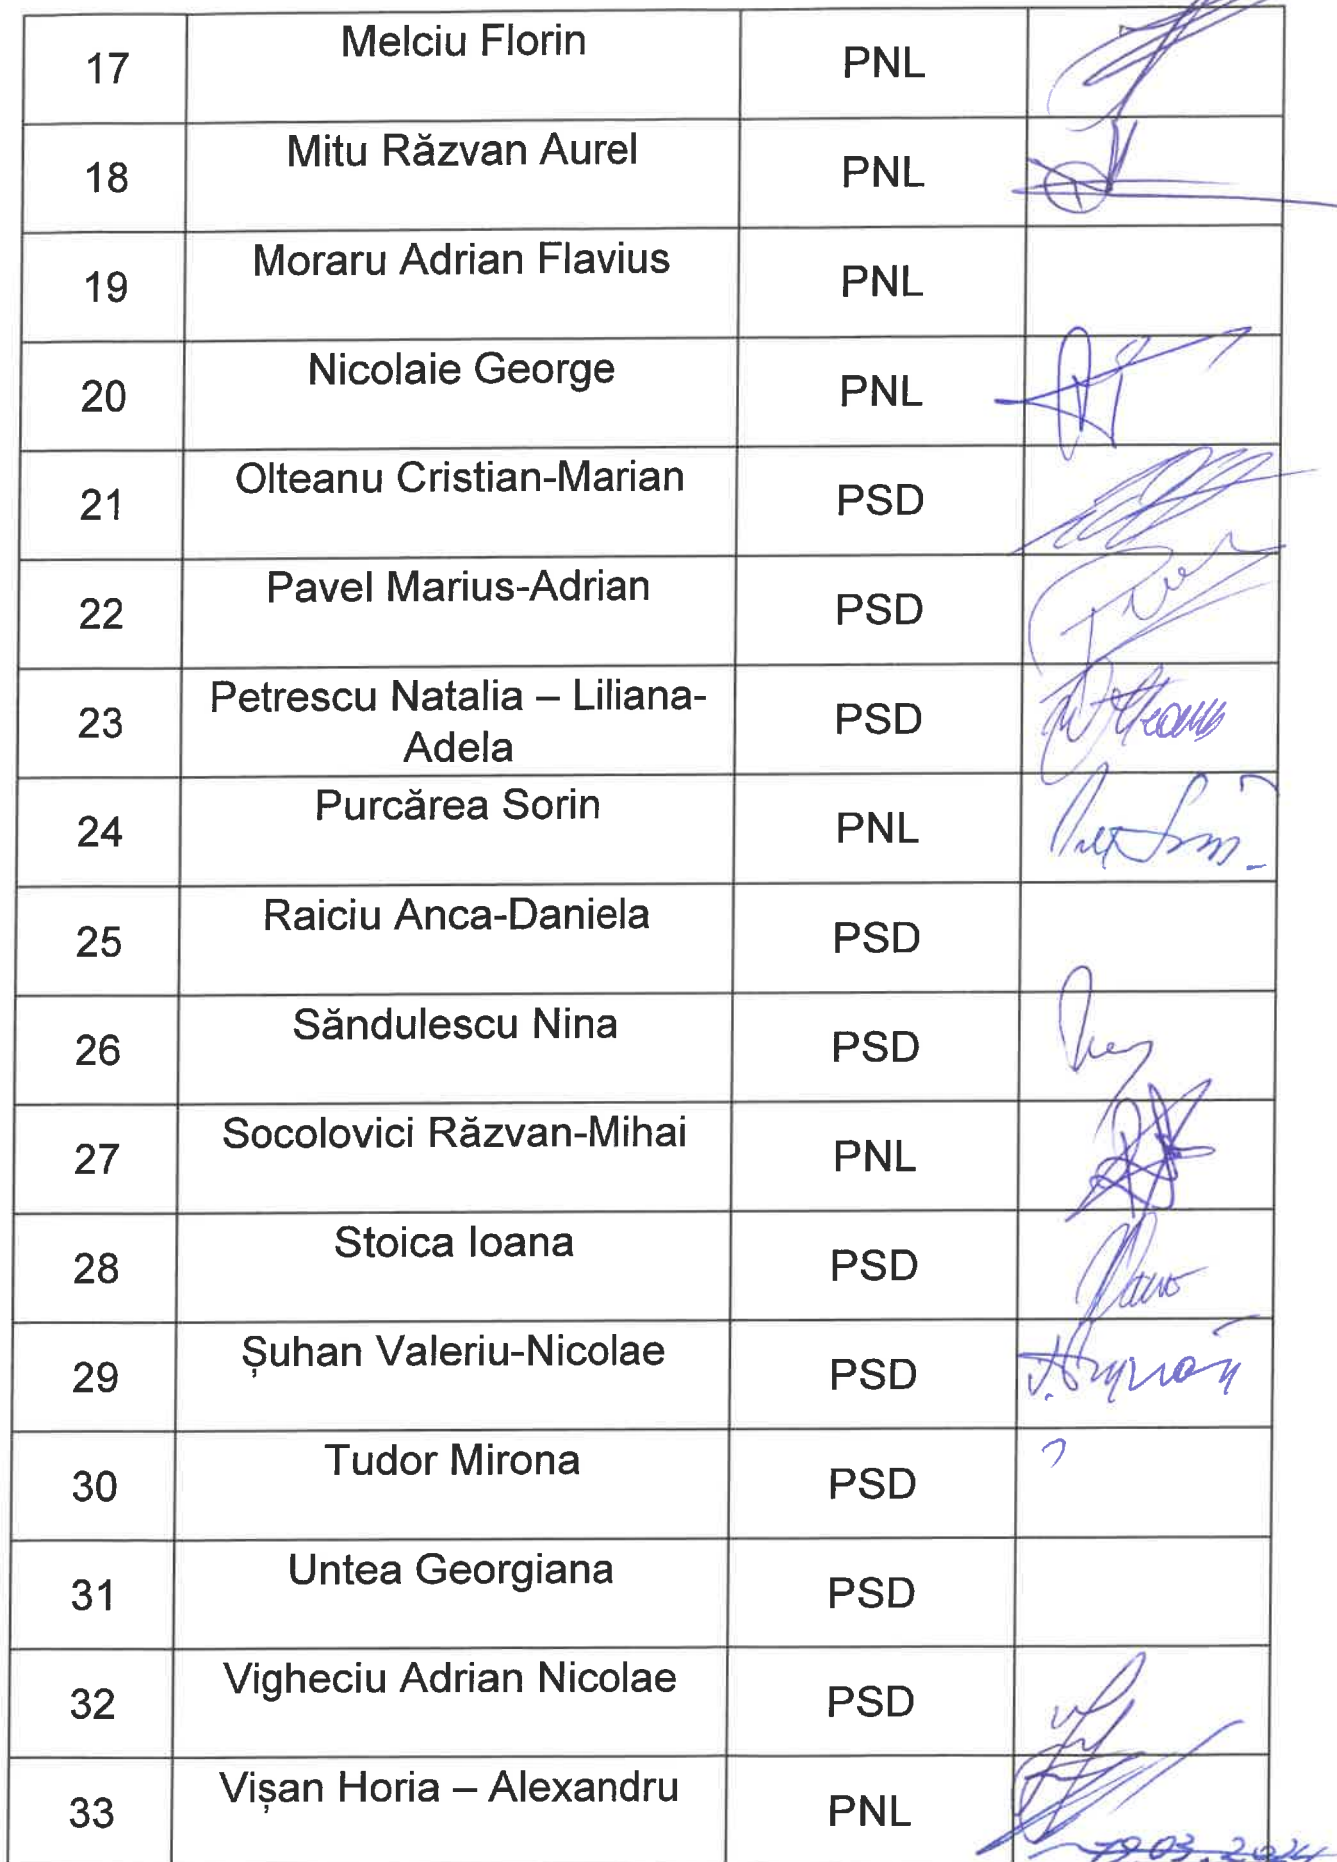 17 Melciu Florin PNL
18 Mitu Răzvan Aurel PNL
19 Moraru Adrian Flavius PNL
20 Nicolaie George PNL
21 Olteanu Cristian-Marian PSD
22 Pavel Marius-Adrian PSD
23 Petrescu Natalia – Liliana- PSD
Adela
24 Purcărea Sorin PNL
25 Raiciu Anca-Daniela PSD
26 Săndulescu Nina PSD
27 Socolovici Răzvan-Mihai PNL
28 Stoica Ioana PSD
29 Șuhan Valeriu-Nicolae PSD
30 Tudor Mirona PSD
31 Untea Georgiana PSD
32 Vigheciu Adrian Nicolae PSD
33 Vișan Horia – Alexandru PNL